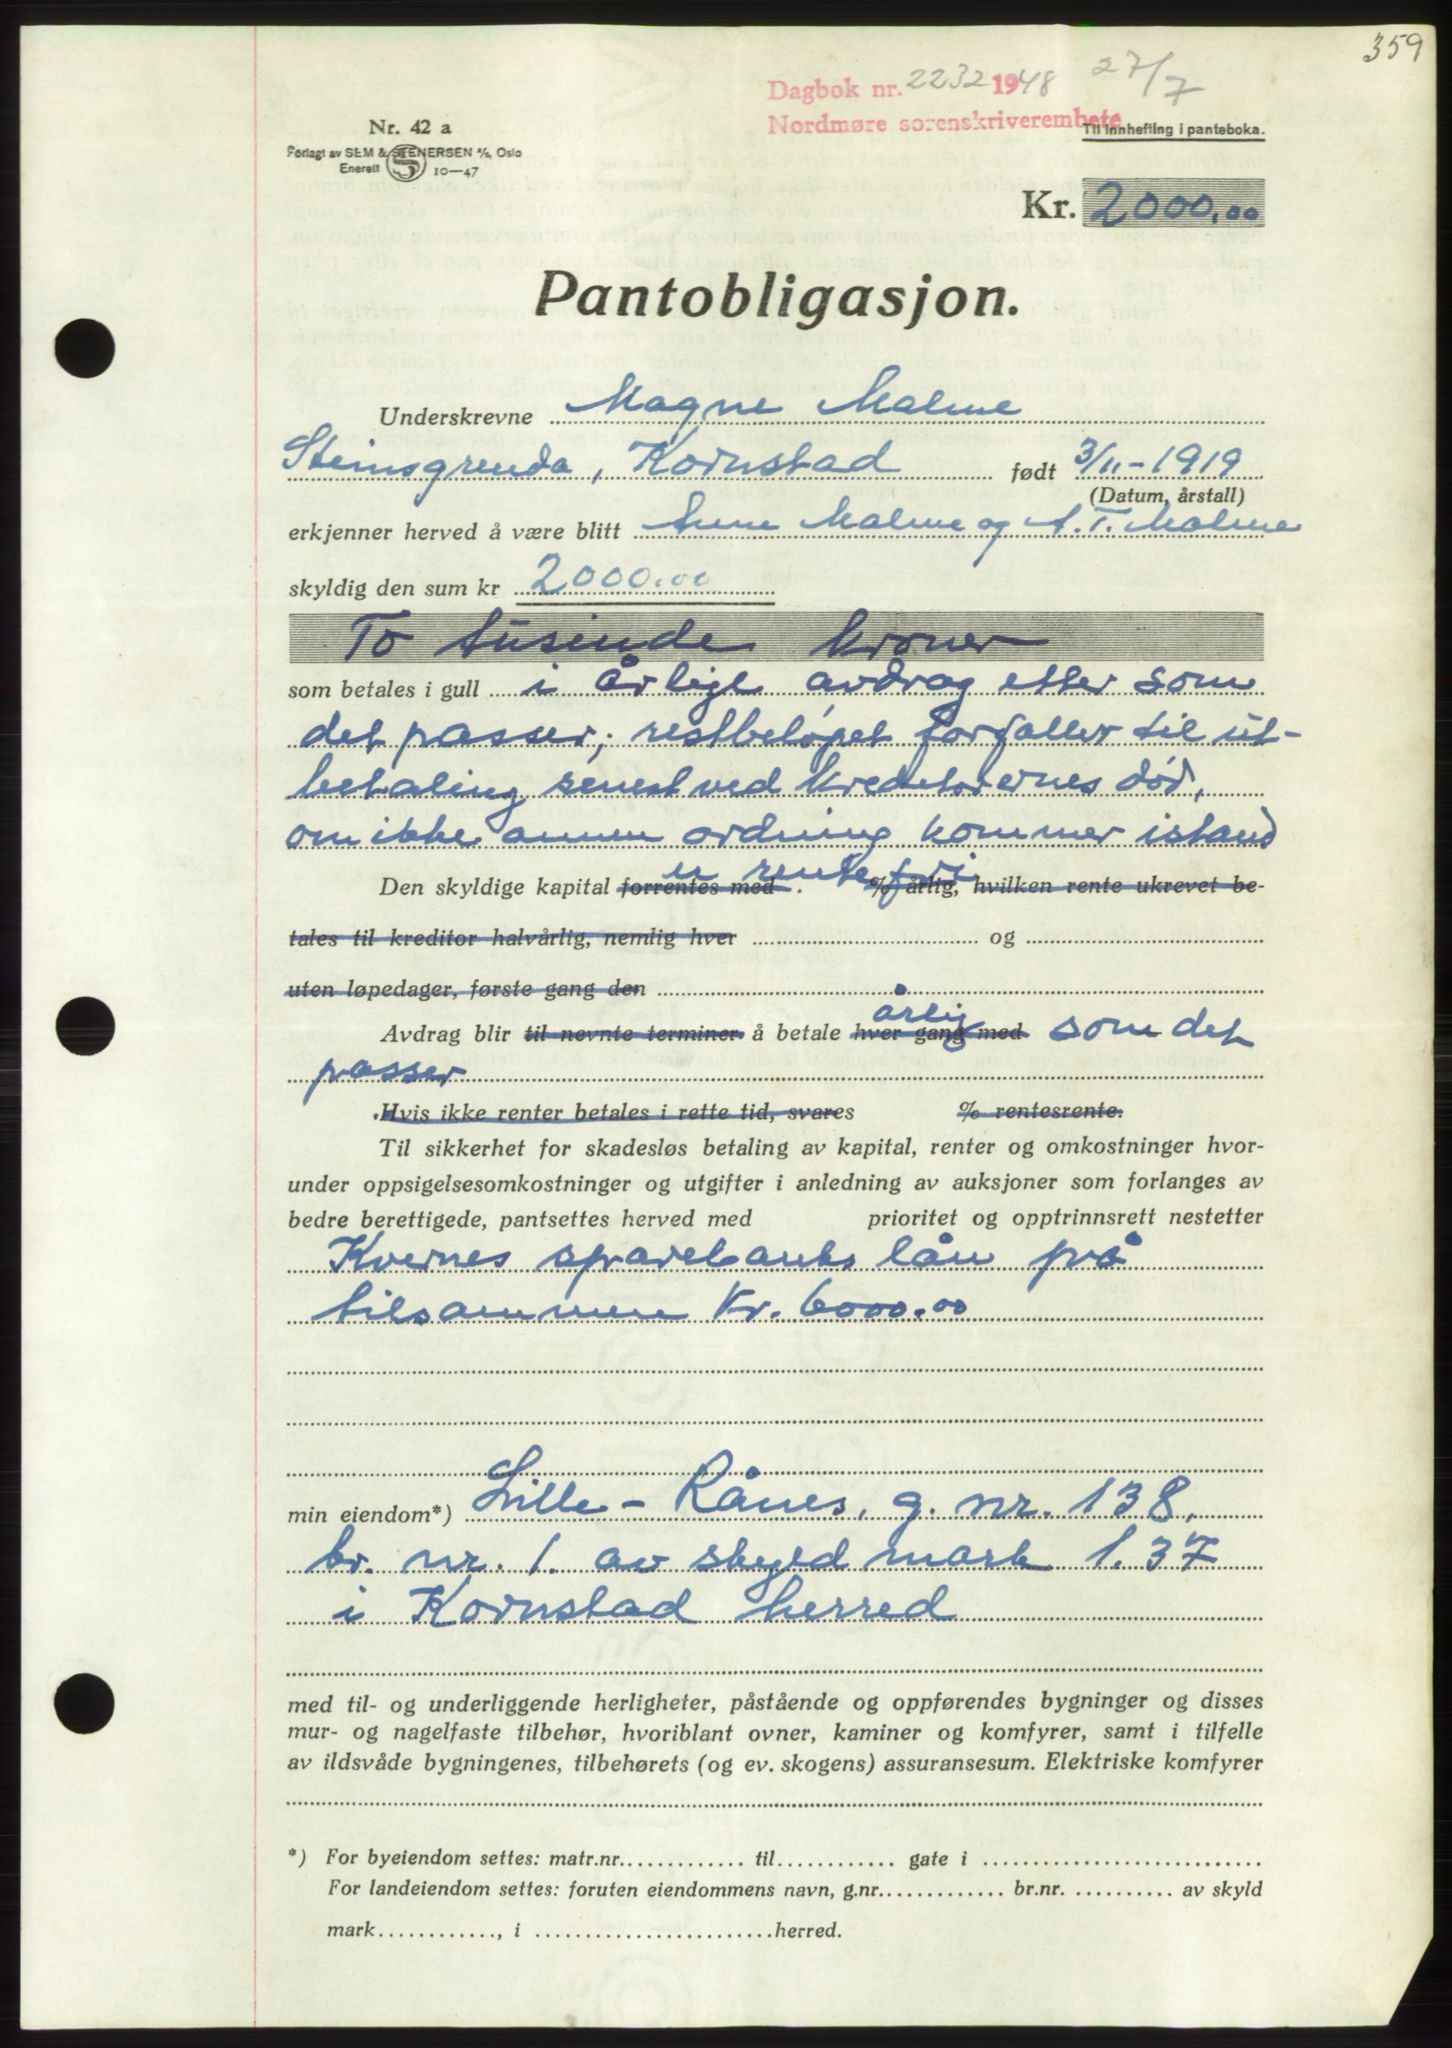 359
Dagbok nr. 2232 1948 27/7
Nordmøre sorenskriverembete
Til innhefting i panteboka.
Nr. 42 a
Forlagt av SEM & STENERSEN A/S, Oslo
Enerett S 10-47
Kr. 2000.00
Pantobligasjon.
Underskrevne Magne Malme
Steinsgrenda, Kornstad født 3/11-1919
(Datum, årstall)
erkjenner herved å være blitt Anne Malme og A. T. Malme
skyldig den sum kr 2000.00
To tusinde kroner
som betales i gull i årlige avdrag etter som
det passer; restbeløpet forfaller til ut-
betaling senest ved kreditorernes død,
om ikke annen ordning kommer istand
er rentefri
Den skyldige kapital forrentes med % årlig, hvilken rente ukrevet be-
tales til kreditor halvårlig, nemlig hver og
uten løpedager, første gang den
årlig
Avdrag blir til nevnte terminer å betale hver gang med som det
passer
Hvis ikke renter betales i rette tid, svares % rentesrente.
Til sikkerhet for skadesløs betaling av kapital, renter og omkostninger hvor-
under oppsigelsesomkostninger og utgifter i anledning av auksjoner som forlanges av
bedre berettigede, pantsettes herved med prioritet og opptrinnsrett nestetter
Kvernes sparebanks lån på
tilsammen Kr. 6000.00
min eiendom*) Lille-Rånes, g. nr. 138,
br. nr. 1. av skyld mark 1.37
i Kornstad herred
med til- og underliggende herligheter, påstående og oppførendes bygninger og disses
mur- og nagelfaste tilbehør, hvoriblant ovner, kaminer og komfyrer, samt i tilfelle
av ildsvåde bygningenes, tilbehørets (og ev. skogens) assuransesum. Elektriske komfyrer
*) For byeiendom settes: matr.nr. til gate i
For landeiendom settes: foruten eiendommens navn, g.nr. br.nr. av skyld
mark , i herred.